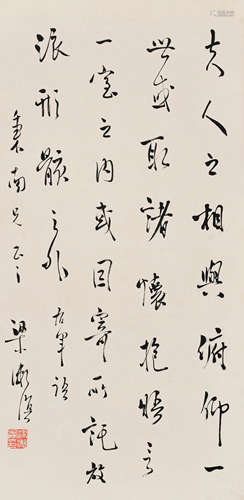 夫人之相與俯仰一
世或取諸懷抱晤言
一室之內或因寄所託放
浪形骸之外 右軍語
秉南兄正之 梁漱溟